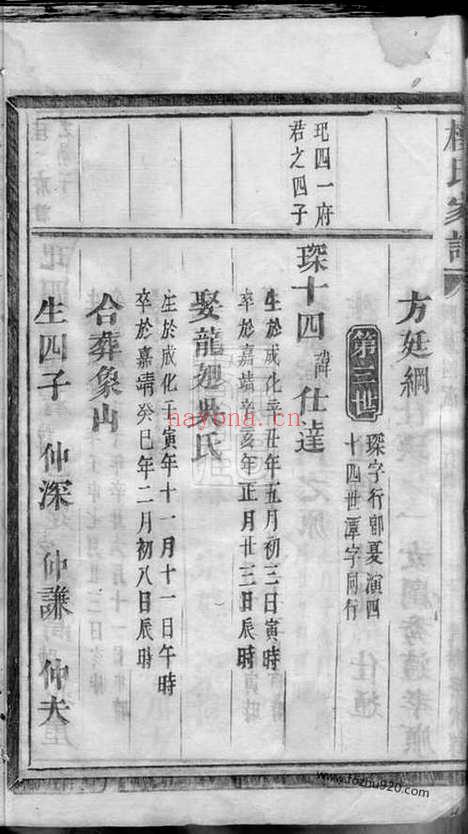 氏家
方廷綱
第三世
琛字行鄣憂演四
十四世潭字同行
玘四一府
君之四子
琛十四 諱 仕達
生於成化辛丑年五月初三日寅時
卒於嘉靖辛亥年正月廿三日辰時
娶龍 氏
生於成化壬寅年十一月十一日午時
卒於嘉靖癸巳年二月初八日辰時
合葬象山
生四子 仲深 仲謙 仲夫
nayona.cn
www.fozhu920.com